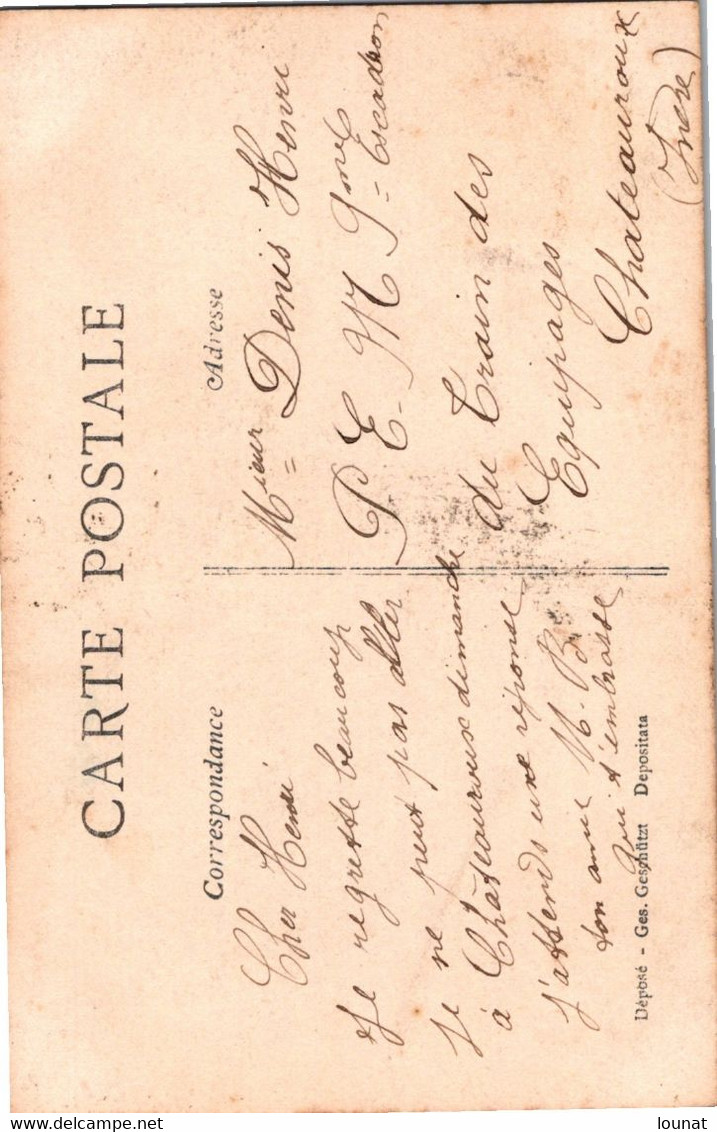 CARTE POSTALE
Correspondance
Cher Henri
Je regrette beaucoup
je ne peut pas aller
à Châteauroux dimanche
j'attends une réponse
ton amie M. B.
qui t'embrasse
Adresse
Mieur Denis Henri
P. E. M 9me Escadron
du Train des
Equipages
Chateauroux
(Indre)
Déposé - Ges. Geschützt Depositata
delcampe.net
lounat